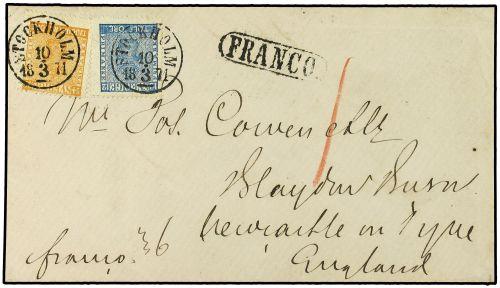 STOCKHOLM
10
3
18 71
STOCKHOLM
10
3
18 71
TOLF ÖRE
FRANCO
Mr Jos. Cowen &
Blaydon Burn
Newcastle on Tyne
England
franco 36